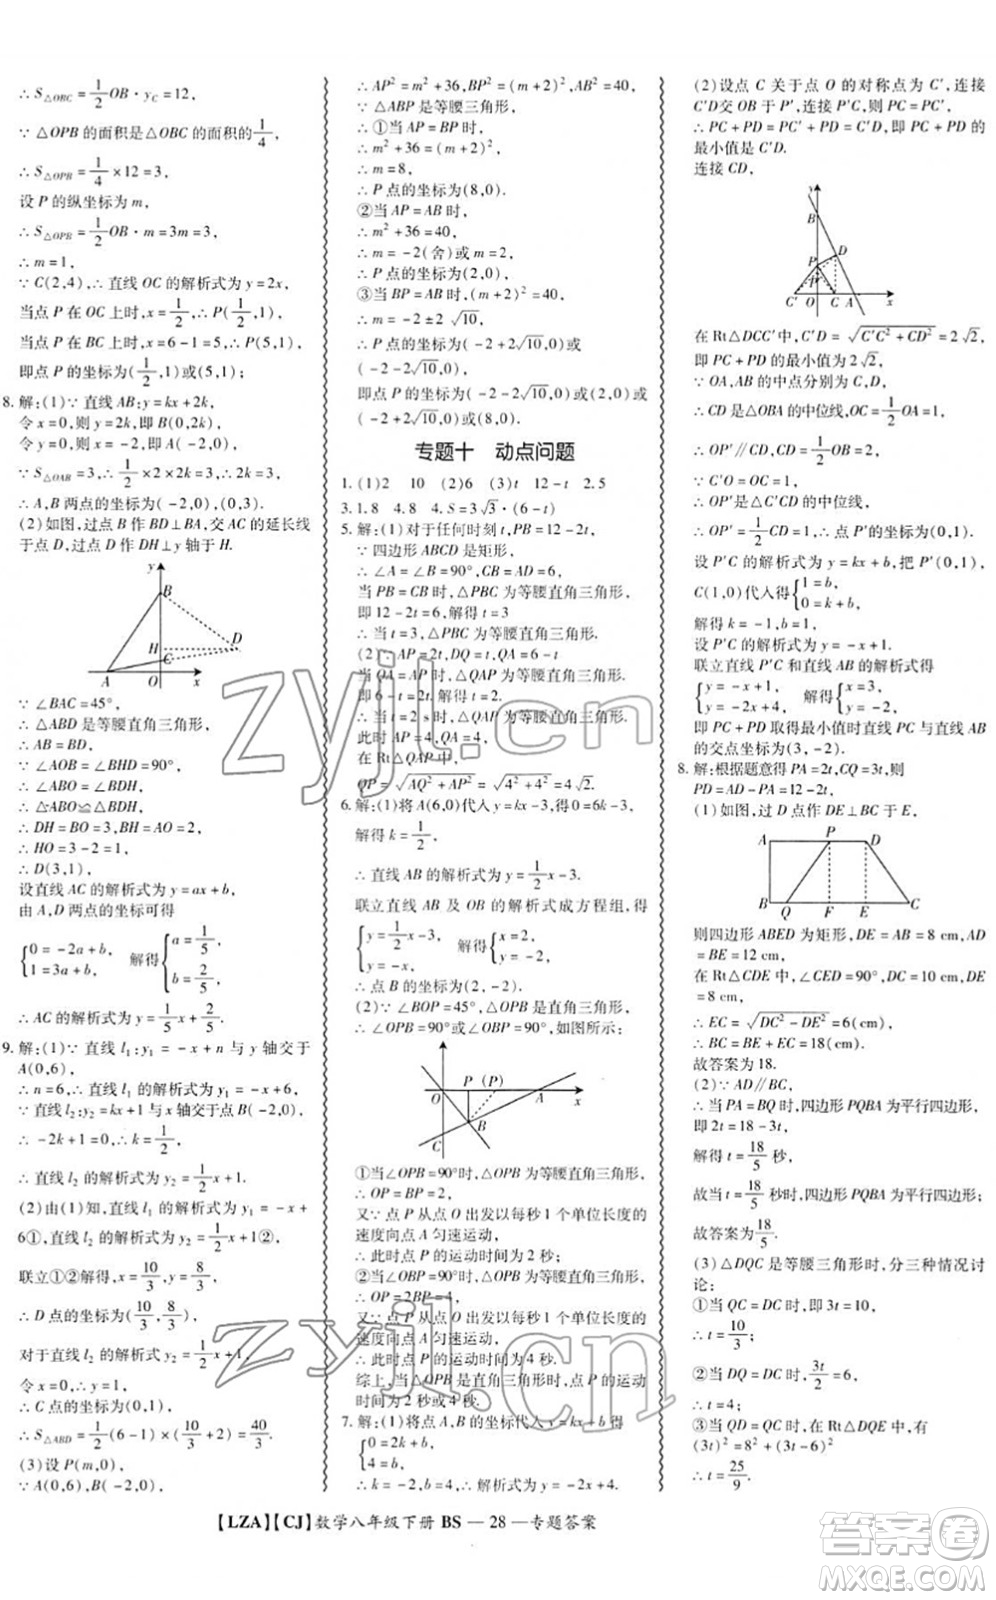 ∴ S△OBC = 1/2 OB · yC = 12,
∵ △OPB 的面积是△OBC 的面积的 1/4,
∴ S△OPB = 1/4 × 12 = 3,
设 P 的纵坐标为 m,
∴ S△OPB = 1/2 OB · m = 3m = 3,
∴ m = 1,
∵ C(2,4),∴ 直线 OC 的解析式为 y = 2x,
当点 P 在 OC 上时,x = 1/2,∴ P(1/2,1),
当点 P 在 BC 上时,x = 6 - 1 = 5,
即点 P 的坐标为(1/2,1)或(5,1);
8. 解:(1)∵ 直线 AB:y = kx + 2k,
令 x = 0,则 y = 2k,即 B(0,2k),
令 y = 0,则 x = -2,即 A(-2,0),
∵ S△OAB = 3,∴ 1/2 × 2 × 2k = 3,∴ 2k = 3,
∴ A,B 两点的坐标为(-2,0),(0,3).
(2)如图,过点 B 作 BD⊥BA,交 AC 的延长线
于点 D,过点 D 作 DH⊥y 轴于 H.
y
B
H
D
C
A O x
∵ ∠BAC = 45°,
∴ △ABD 是等腰直角三角形,
∴ AB = BD,
∵ ∠AOB = ∠BHD = 90°,
∴ ∠ABO = ∠BDH,
∴ △ABO≌△BDH,
∴ DH = BO = 3,BH = AO = 2,
∴ HO = 3 - 2 = 1,
∴ D(3,1),
设直线 AC 的解析式为 y = ax + b,
由 A,D 两点的坐标可得
{0 = -2a + b, 1 = 3a + b, 解得{a = 1/5, b = 2/5.
∴ AC 的解析式为 y = 1/5 x + 2/5.
9. 解:(1)∵ 直线 l₁:y₁ = -x + n 与 y 轴交于
A(0,6),
∴ n = 6,∴ 直线 l₁ 的解析式为 y₁ = -x + 6;
∵ 直线 l₂:y₂ = kx + 1 与 x 轴交于点 B(-2,0),
∴ -2k + 1 = 0,∴ k = 1/2,
∴ 直线 l₂ 的解析式为 y₂ = 1/2 x + 1.
(2)由(1)知,直线 l₁ 的解析式为 y₁ = -x +
6①,直线 l₂ 的解析式为 y₂ = 1/2 x + 1②,
联立①②解得,x = 10/3,y = 8/3,
∴ D 点的坐标为(10/3,8/3),
对于直线 l₂ 的解析式为 y₂ = 1/2 x + 1,
令 x = 0,则 y = 1,
∴ C 点的坐标为(0,1),
∴ S△ABD = 1/2(6 - 1)(2 + 10/3) = 40/3.
(3)设 P(m,0),
∵ A(0,6),B(-2,0),
∴ AP² = m² + 36,BP² = (m + 2)²,AB² = 40,
∵ △ABP 是等腰三角形,
∴ ①当 AP = BP 时,
∴ m² + 36 = (m + 2)²,
∴ m = 8,
∴ P 点的坐标为(8,0).
②当 AP = AB 时,
∴ m² + 36 = 40,
∴ m = -2(舍)或 m = 2,
∴ P 点的坐标为(2,0).
③当 BP = AB 时,(m + 2)² = 40,
∴ m = -2 ± 2√10,
∴ P 点的坐标为(-2 + 2√10,0)或
(-2 - 2√10,0),
即点 P 的坐标为(-2 - 2√10,0)或(2,0)或
(-2 + 2√10,0)或(8,0).
专题十 动点问题
1. (1)2 10 (2)6 (3)t 12 - t 2. 5
3. 1. 8 4. 8 4. S = 3√3 · (6 - t)
5. 解:(1)对于任何时刻 t,PB = 12 - 2t,
∵ 四边形 ABCD 是矩形,
∴ ∠A = ∠B = 90°,CB = AD = 6,
当 PB = CB 时,△PBC 为等腰直角三角形,
即 12 - 2t = 6,解得 t = 3
∴ 当 t = 3,△PBC 为等腰直角三角形.
(2)∵ AP = 2t,DQ = t,QA = 6 - t,
当 QA = AP 时,△QAP 为等腰直角三角形,
即 6 - t = 2t,解得 t = 2,
∴ 当 t = 2 s 时,△QAP 为等腰直角三角形.
此时 AP = 4,QA = 4,
在 Rt△QAP 中,
QP = √(AQ² + AP²) = √(4² + 4²) = 4√2.
6. 解:(1)将 A(6,0)代入 y = kx - 3,得 0 = 6k - 3,
解得 k = 1/2,
∴ 直线 AB 的解析式为 y = 1/2 x - 3.
联立直线 AB 及 OB 的解析式成方程组,得
{y = 1/2 x - 3, y = -x, 解得{x = 2, y = -2.
∴ 点 B 的坐标为(2,-2).
(2)∵ ∠BOP = 45°,△OPB 是直角三角形,
∴ ∠OPB = 90°或∠OBP = 90°,如图所示:
y
O P (P) A x
B
C
①当∠OPB = 90°时,△OPB 为等腰直角三角形,
∴ OP = BP = 2,
又∵ 点 P 从点 O 出发以每秒 1 个单位长度的
速度向点 A 匀速运动,
∴ 此时点 P 的运动时间为 2 秒;
②当∠OBP = 90°时,△OPB 为等腰直角三角形,
∴ OP = 2BP = 4,
又∵ 点 P 从点 O 出发以每秒 1 个单位长度的
速度向点 A 匀速运动,
∴ 此时点 P 的运动时间为 4 秒.
综上,当△OPB 是直角三角形时,点 P 的运动
时间为 2 秒或 4 秒.
7. 解:(1)将点 A,B 的坐标代入 y = kx + b 得
{0 = 2k + b, 4 = b,
∴ k = -2,b = 4,∴ 解析式为 y = -2x + 4;
(2)设点 C 关于点 O 的对称点为 C′,连接
C′D 交 OB 于 P′,连接 P′C,则 PC = PC′,
∴ PC + PD = PC′ + PD = C′D,即 PC + PD 的
最小值是 C′D.
连接 CD,
y
B
P D
C′ O C A x
在 Rt△DCC′中,C′D = √(C′C² + CD²) = 2√2,
即 PC + PD 的最小值为 2√2,
∵ OA,AB 的中点分别为 C,D,
∴ CD 是△OBA 的中位线,∴ OC = 1/2 OA =
1,CD = 1/2 OB = 2,
∴ OP′∥CD,
∵ C′O = OC,
∴ OP′是△C′CD 的中位线,
∴ OP′ = 1/2 CD = 1,∴ 点 P′的坐标为(0,1).
设 P′C 的解析式为 y = kx + b,把 P′(0,1),
C(1,0)代入得{1 = b, 0 = k + b,
解得 k = -1,b = 1,
设 P′C 的解析式为 y = -x + 1,
联立直线 P′C 和直线 AB 的解析式得
{y = -x + 1, y = -2x + 4, 解得{x = 3, y = -2.
即 PC + PD 取得最小值时直线 PC 与直线 AB
的交点坐标为(3,-2).
8. 解:根据题意得 PA = 2t,CQ = 3t,则
PD = AD - PA = 12 - 2t,
(1)如图,过 D 点作 DE⊥BC 于 E,
A P D
B Q F E C
则四边形 ABED 为矩形,DE = AB = 8 cm,AD
= BE = 12 cm,
在 Rt△CDE 中,∠CED = 90°,DC = 10 cm,DE
= 8 cm,
∴ EC = √(DC² - DE²) = 6(cm),
∴ BC = BE + EC = 18(cm).
故答案为 18.
(2)∵ AD∥BC,
∴ 当 PA = BQ 时,四边形 PQBA 为平行四边形,
即 2t = 18 - 3t,
解得 t = 18/5 秒,
故当 t = 18/5 秒时,四边形 PQBA 为平行四边形;
故答案为 18/5.
(3)△DQC 是等腰三角形时,分三种情况讨
论:
①当 QC = DC 时,即 3t = 10,
∴ t = 10/3;
②当 DQ = DC 时,3t/2 = 6,
∴ t = 4;
③当 QD = QC 时,在 Rt△DQE 中,
(3t)² = 8² + (3t - 6)²
∴ t = 25/9.
【LZA】【CJ】数学八年级下册 BS — 28 —专题答案
zyjl.cn
zyjl.cn
答案圈
MXQE.COM